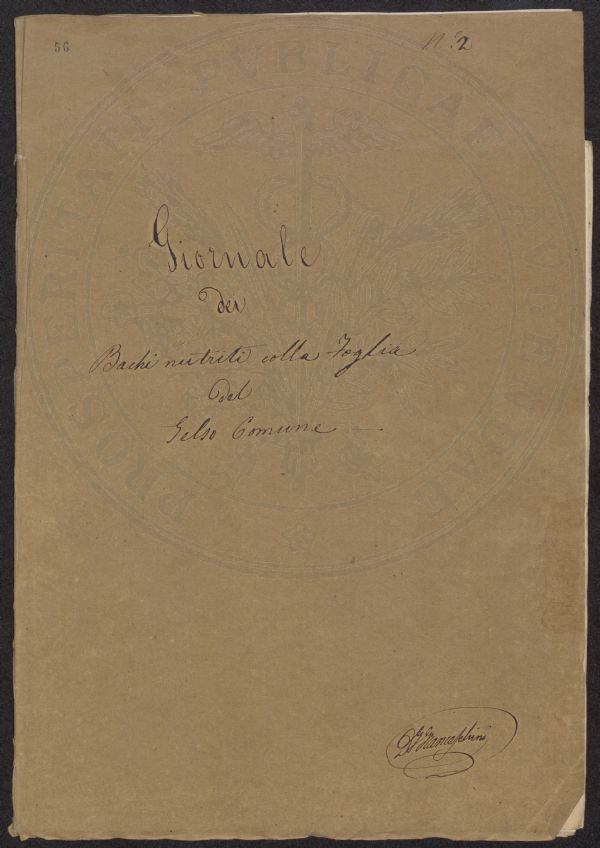 56
N.º 2
PROSPERITATI PVBLICAE AVGENDAE
Giornale
dei
Bachi nutriti colla Foglia
del
Gelso Comune